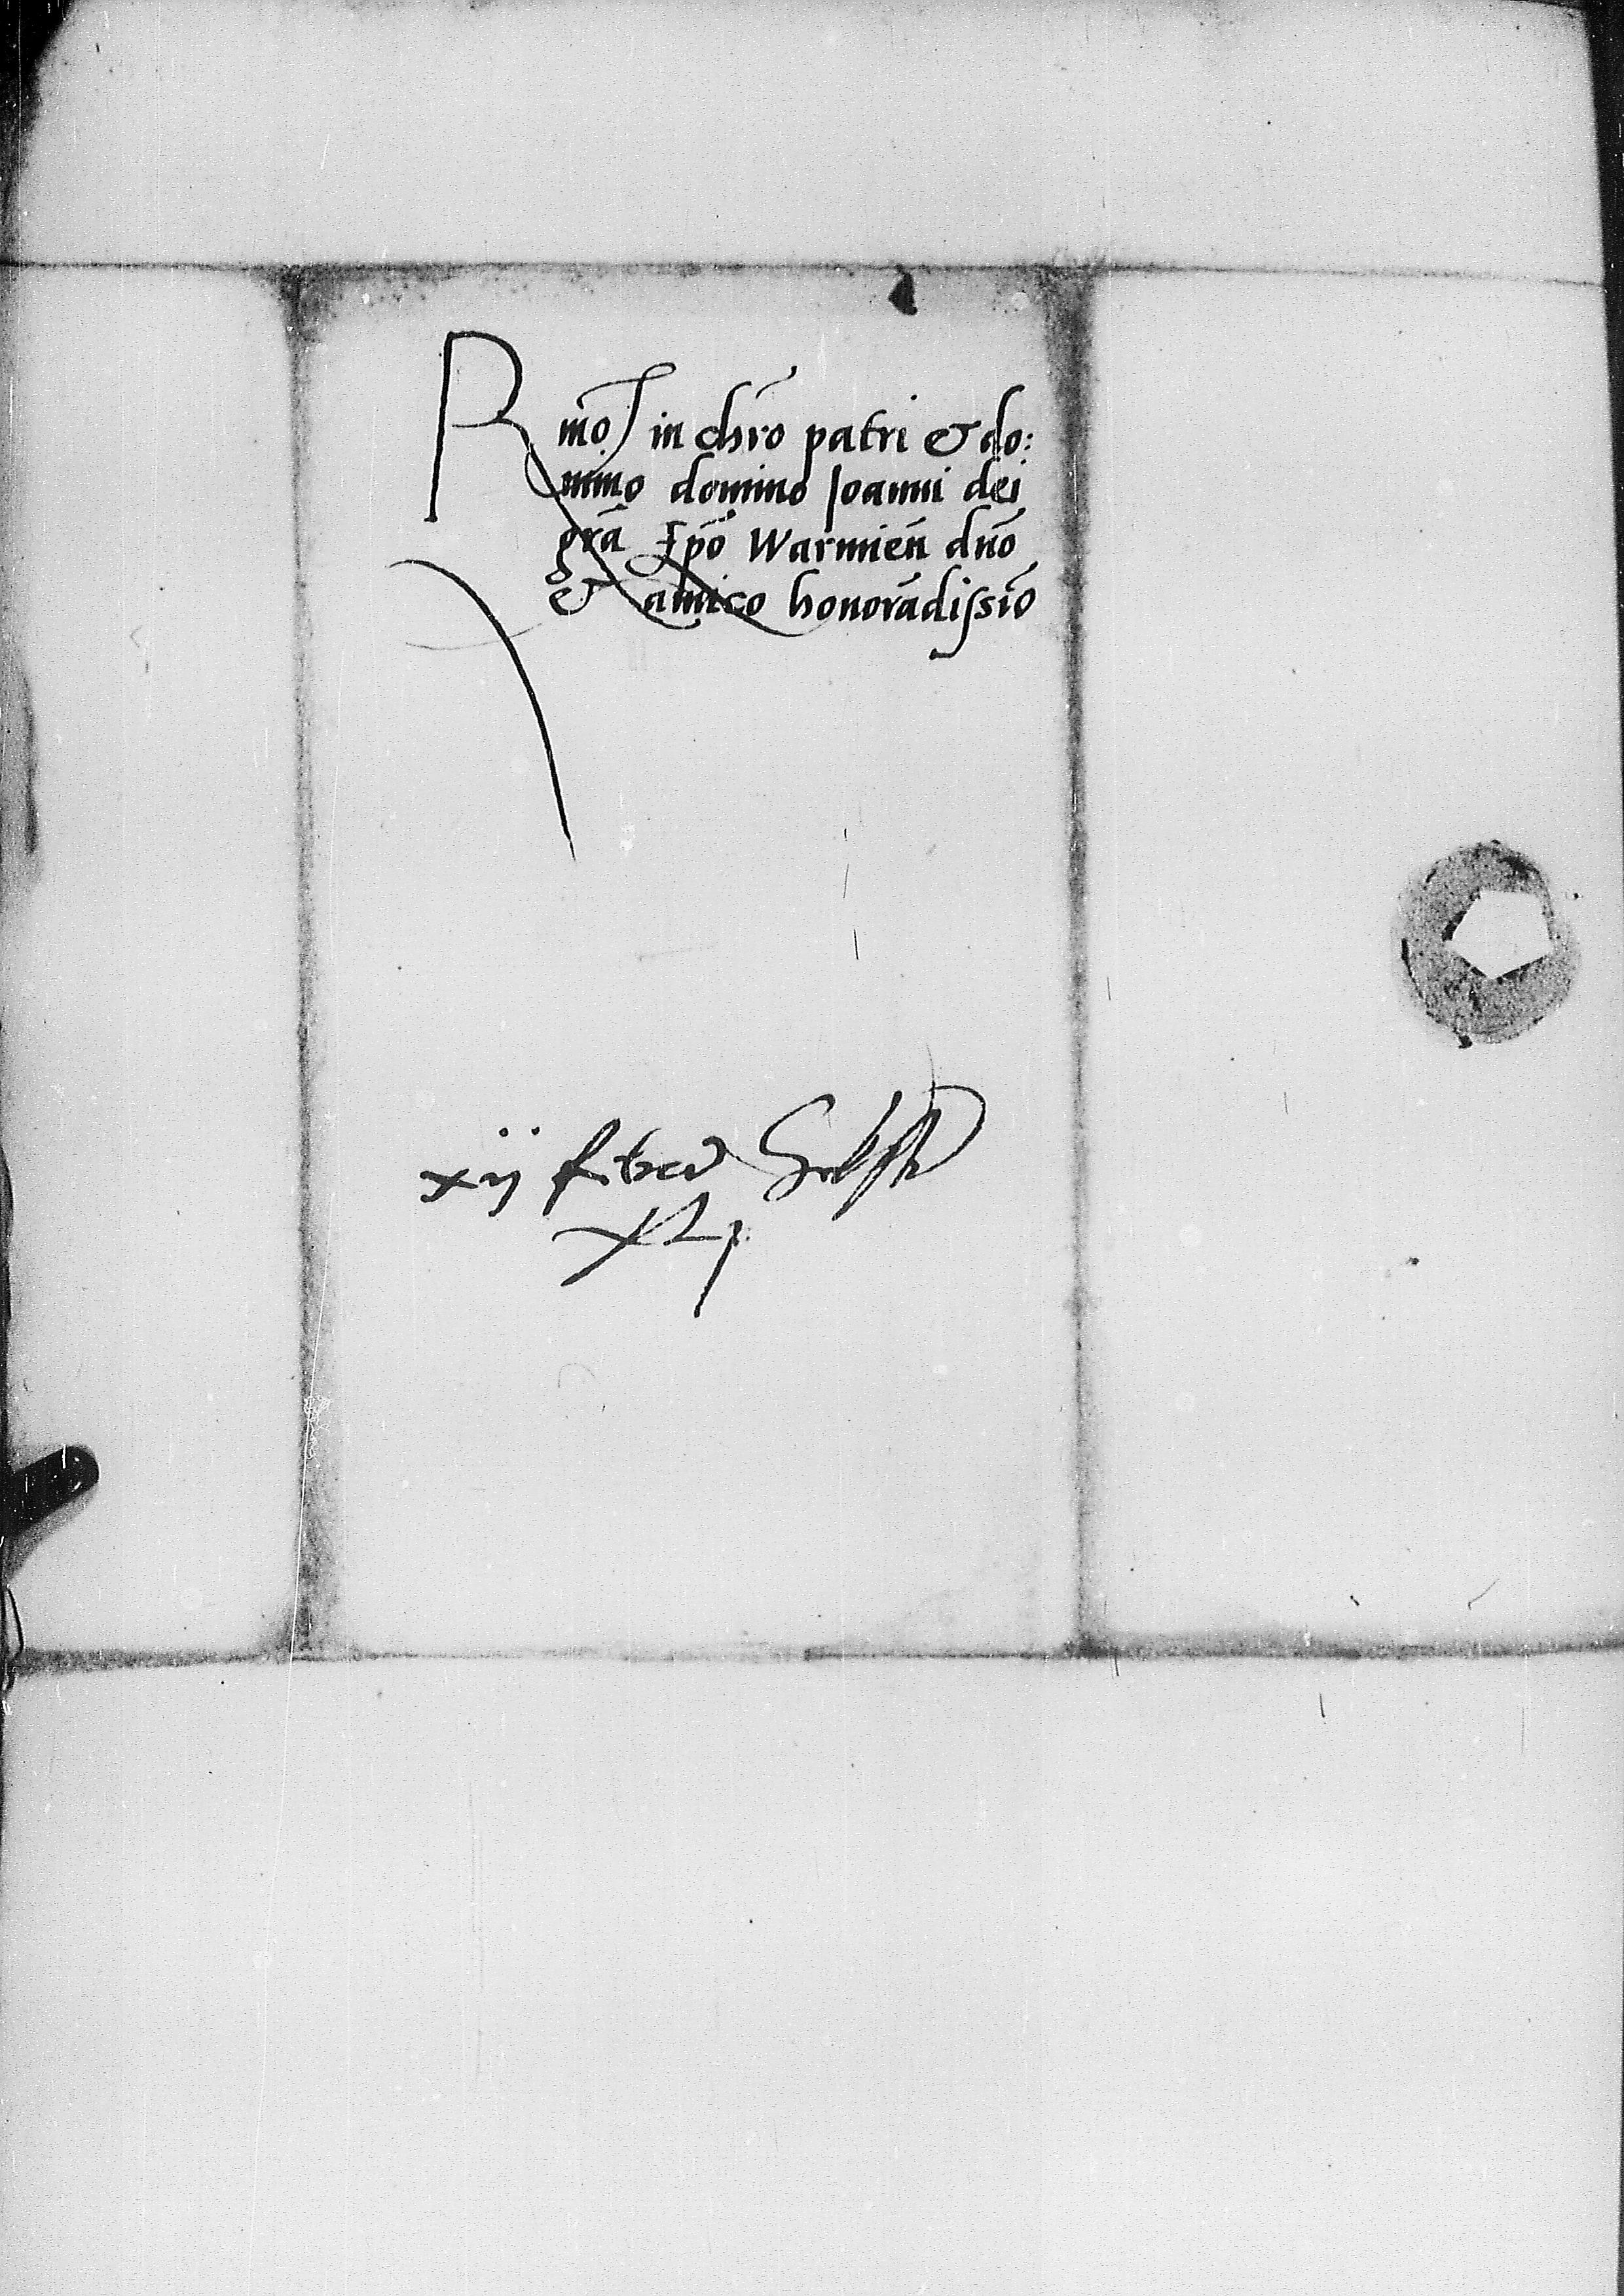 Rmo in chro patri & do:
mino domino Joanni dei
gra Epo Warmien dno
& amico honoradissio
xij febru
xlj